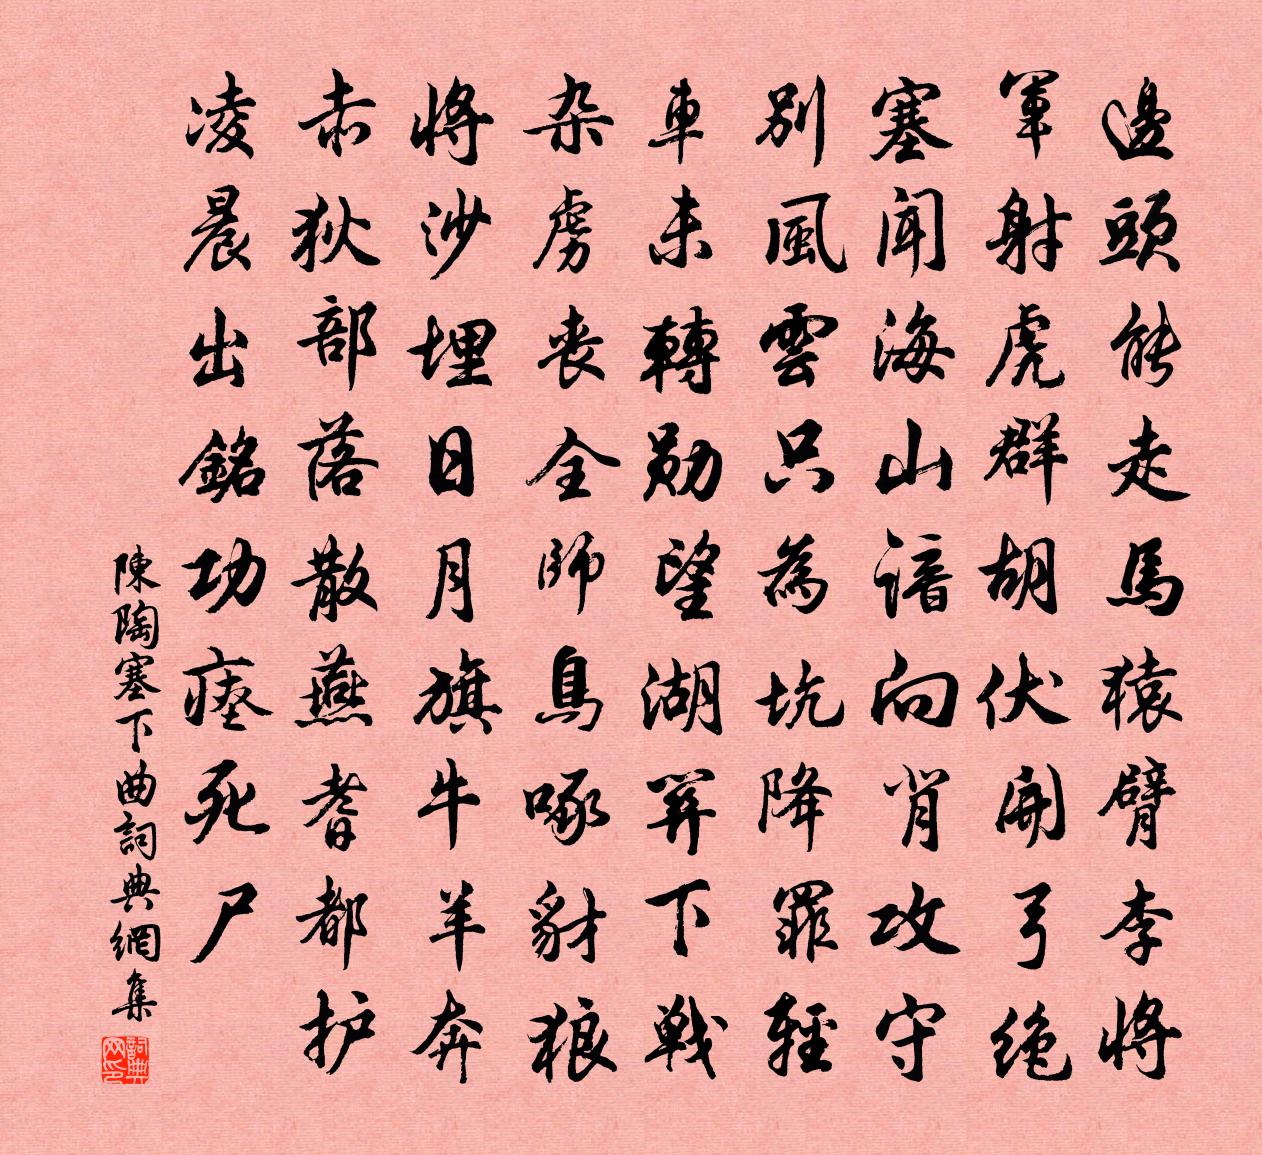 邊頭能走馬猿臂李將
軍射虎群胡伏開弓絶
塞聞海山諳向背攻守
別風雲只為坑降罪輕
車未轉勋望湖笄下戰
杂虜丧全師鳥啄豺狼
將沙埋日月旗牛羊奔
赤狄部落散燕耆都护
凌晨出銘功瘞死尸
陳陶塞下曲詞典網集
詞典网印